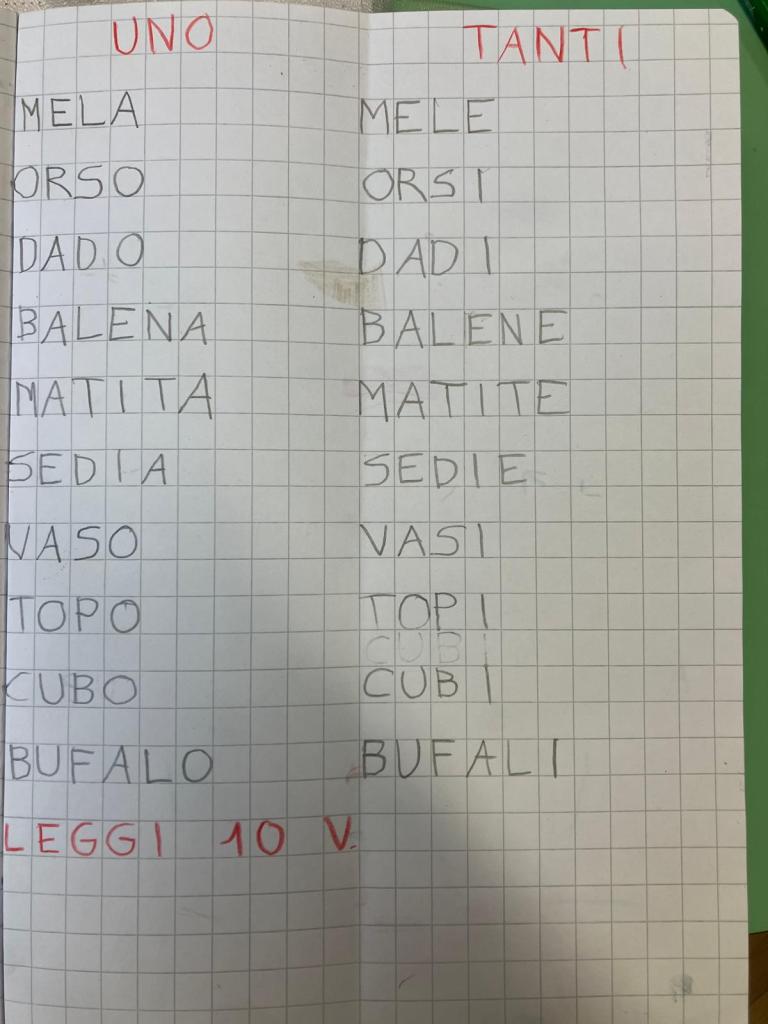 UNO TANTI
MELA MELE
ORSO ORSI
DADO DADI
BALENA BALENE
MATITA MATITE
SEDIA SEDIE
VASO VASI
TOPO TOPI
CUBI
CUBO CUBI
BUFALO BUFALI
LEGGI 10 V.